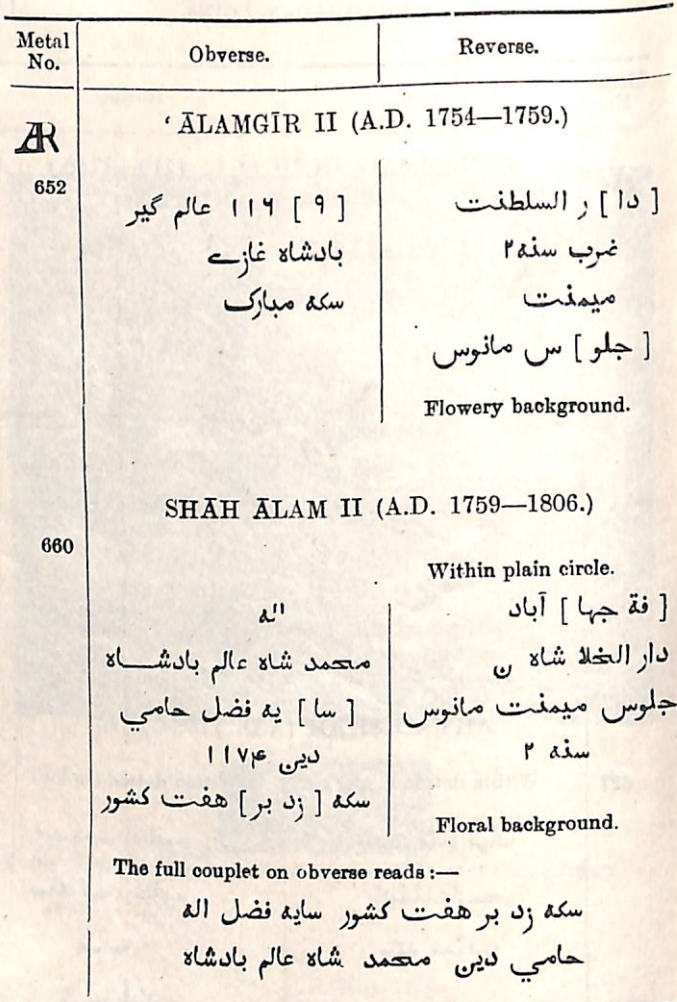 Metal No.
Obverse.
Reverse.
‘ ĀLAMGĪR II (A.D. 1754—1759.)
ÆR
652
[ ۹ ] ۱۱۶ عالم گیر
بادشاہ غازے
سکہ مبارک
[ دا ] ر السلطنت
ضرب سنہ۲
میمنت
[ جلو ] س مانوس
Flowery background.
SHĀH ĀLAM II (A.D. 1759—1806.)
660
الہ
محمد شاہ عالم بادشـــاہ
[ سا ] یہ فضل حامي
دین ۱۱۷۴
سکہ [ زد بر ] هفت کشور
Within plain circle.
[ فة جہا ] آباد
دار الخلا شاہ ن
جلوس میمنت مانوس
سنہ ۲
Floral background.
The full couplet on obverse reads :—
سکہ زد بر هفت کشور سایہ فضل الہ
حامي دین محمد شاہ عالم بادشاہ